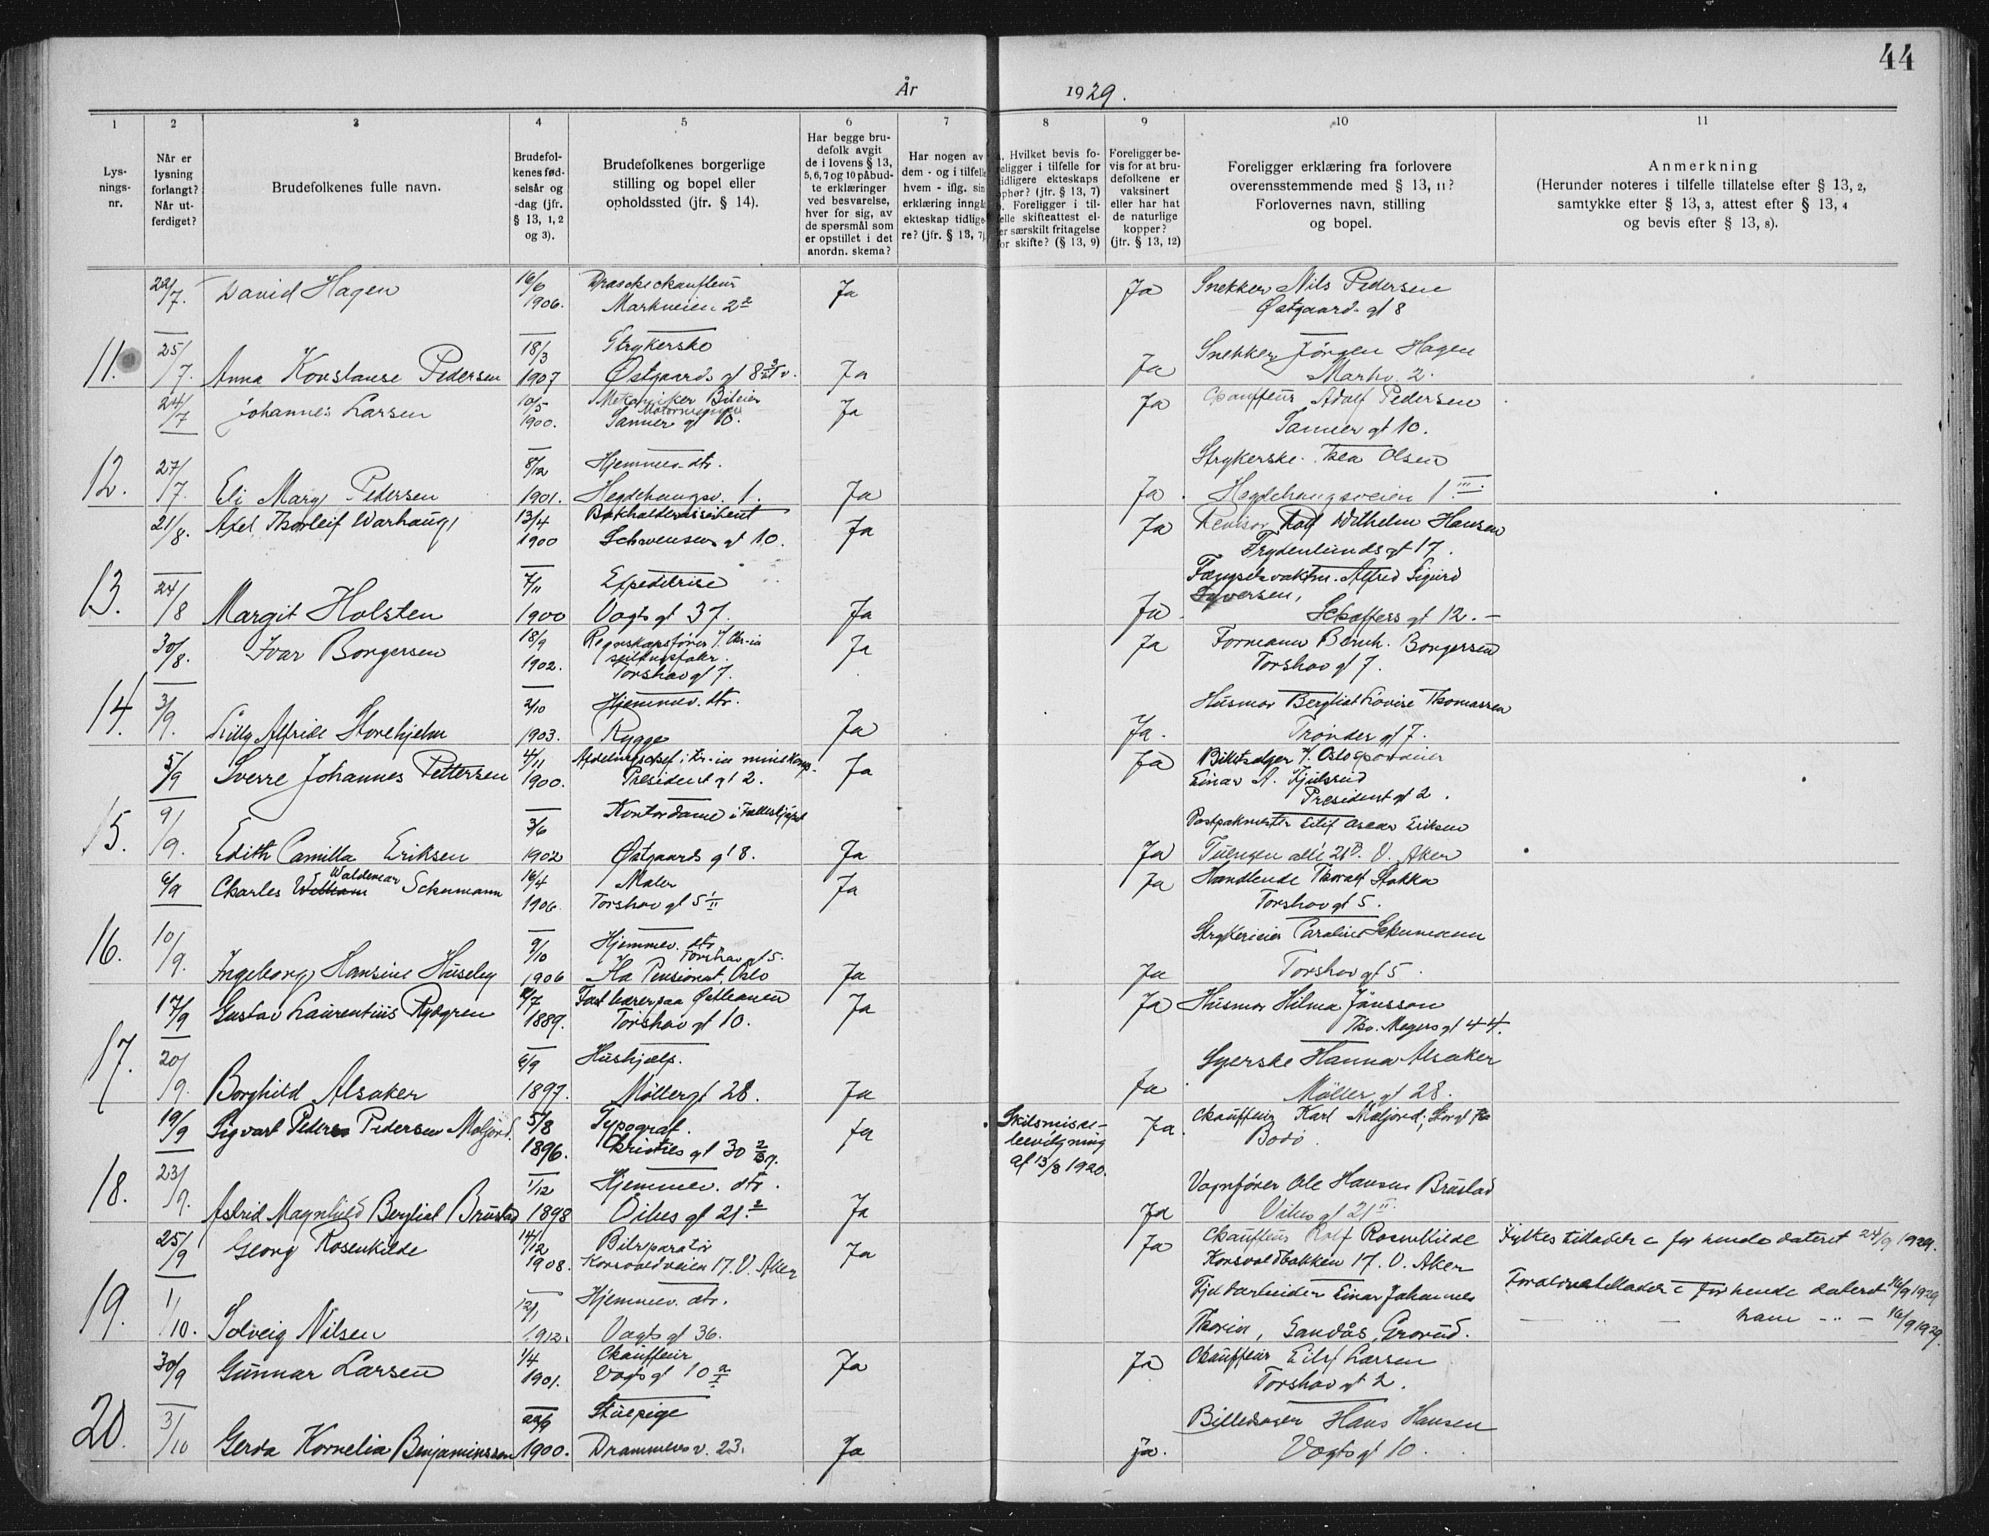 44
År 1929.
1 2 3 4 5 6 7 8 9 10 11
Lys-
nings-
nr.
Når er
lysning
forlangt?
Når ut-
ferdiget?
Brudefolkenes fulle navn.
Brudefol-
kenes fød-
selsår og
-dag (jfr.
§ 13, 1, 2
og 3).
Brudefolkenes borgerlige
stilling og bopel eller
opholdssted (jfr. § 14).
Har begge bru-
defolk avgit
de i lovens § 13,
5, 6, 7 og 10 påbud-
te erklæringer
ved besvarelse,
hver for sig, av
de spørsmål som
er opstillet i det
anordn. skema?
Har nogen av
dem - og i tilfelle
hvem - iflg. sin
erklæring inngå
ekteskap tidlige-
re? (jfr. § 13, 7)
a. Hvilket bevis fo-
religger i tilfelle for
tidligere ekteskaps
ophør? (jfr. § 13, 7)
b. Foreligger i til-
felle skifteattest el-
ler særskilt fritagelse
for skifte? (§ 13, 9)
Foreligger be-
vis for at bru-
defolkene er
vaksinert
eller har hat
de naturlige
kopper?
(jfr. § 13, 12)
Foreligger erklæring fra forlovere
overensstemmende med § 13, 11?
Forlovernes navn, stilling
og bopel.
Anmerkning
(Herunder noteres i tilfelle tillatelse efter § 13, 2,
samtykke efter § 13, 3, attest efter § 13, 4
og bevis efter § 13, 8).
22/7. David Hagen 16/6 1906. Markveien 2 Ja Ja Snekker Nils Pedersen
Østgaards gt 8
11. 25/7. Anna Konstanse Pedersen 18/3 1907 Strykerske
Østgaards gt 8 Ja Ja Snekker Jørgen Hagen
Markv. 2.
24/7 Johannes Larsen 10/5 1900. Mekaniker
Sanner gt 10. Ja Ja Chauffeur Adolf Pedersen
Sanner gt 10.
12. 27/7. Eli Mary Pedersen 8/12 1901. Hjemmev. dtr.
Hegdehaugsv. 1. Ja Ja Strykerske Thea Olsen
Hegdehaugsveien 1 III
21/8. Axel Thorleif Warhaug 13/4 1900 Bokholderassistent
Schwensens gt 10. Ja Ja Revisor Rolf Wilhelm Hansen
Frydenlunds gt 17.
13. 24/8 Margit Holsten 7/11 1900 Expeditrise
Vogts gt 37. Ja Ja Fængselsvaktm. Alfred Sigurd
Syversen,
Schaffers gt 12. -
30/8. Ivar Borgersen 18/9 1902. Regnskapsfører
Torshov gt 7. Ja Ja Formann Bernh. Borgersen
Torshov gt 7.
14. 3/9. Lilly Alfride Storehjelm 2/10 1903. Hjemmev. dtr.
Rygge Ja Ja. Husmor Bergliot Lovise Thomassen
Trønder gt 7.
5/9 Sverre Johannes Pettersen 4/11 1900.
President gt 2. Ja Ja
Einar A. Kjulsrud
President gt 2.
15. 9/9. Edith Camilla Eriksen 3/6 1902 Kontordame i
Østgaards gt 8. Ja Ja Postpakmester Eilif Oscar Eriksen
Tuengen allé 21 B. V. Aker
6/9 Charles Waldemar Schumann 16/4 1906 Maler
Torshov gt 5 II Ja Ja Handlende Thoralf Stokka
Torshov gt 5.
16. 10/9. Ingeborg Hansine Huseby 9/10 1906 Hjemmev. dtr.
Torshov gt 5.
Ila Pensionat, Oslo Ja Ja Strykerieier Caroline Schumann
Torshov gt 5
17/9 Gustav Laurentius Rydgren 1889. Fast bærer paa Østbanen
Torshov gt 10. Ja Ja Husmor Hilma Jansson
Thv. Meyers gt 44.
17. 20/9. Borghild Alsaker 6/9 1897. Hushjælp.
Møllergt 28. Ja Ja Syerske Hanna Alsaker
Møller gt 28.
19/9 Sigvart Peder Pedersen Moljord. 5/8 1896. Typograf.
Christies gt 30 Ja Skilsmisse-
bevilgning
af 13/8 1920. Ja. Chauffeur Karl Moljord,
Bodø.
18. 23/9. Astrid Magnhild Bergliot Brustad 1/12 1898 Hjemmev. dtr.
Vibes gt 21 Ja Ja Vognfører Ole Hansen Brustad
Vibes gt 21 II
25/9 Georg Rosenkilde 14/12 1908. Bilreparatør
Korsvoldveien 17. V. Aker Ja Ja Chauffeur Rolf Rosenkilde
Korsvoldbakken 17. V. Aker
Fylkes tilladelse for hende dateret 24/9 1929.
19. 1/10. Solveig Nilsen 12/1 1912. Hjemmev. dtr.
Vogts gt 36. Einar Johannes
Thorin, Sandås, Grorud.
for hende dateret 16/9 1929
ham 16/9 1929.
30/9 Gunnar Larsen 1/4 1901. Chauffeur
Vogts gt 10 Ja Ja Chauffeur Eilif Larsen
Torshov gt 2.
20. 3/10 Gerda Kornelia Benjaminsson 1900. Stuepige
Drammensv. 23. Ja Ja. Hans Hansen
Vogts gt 10.